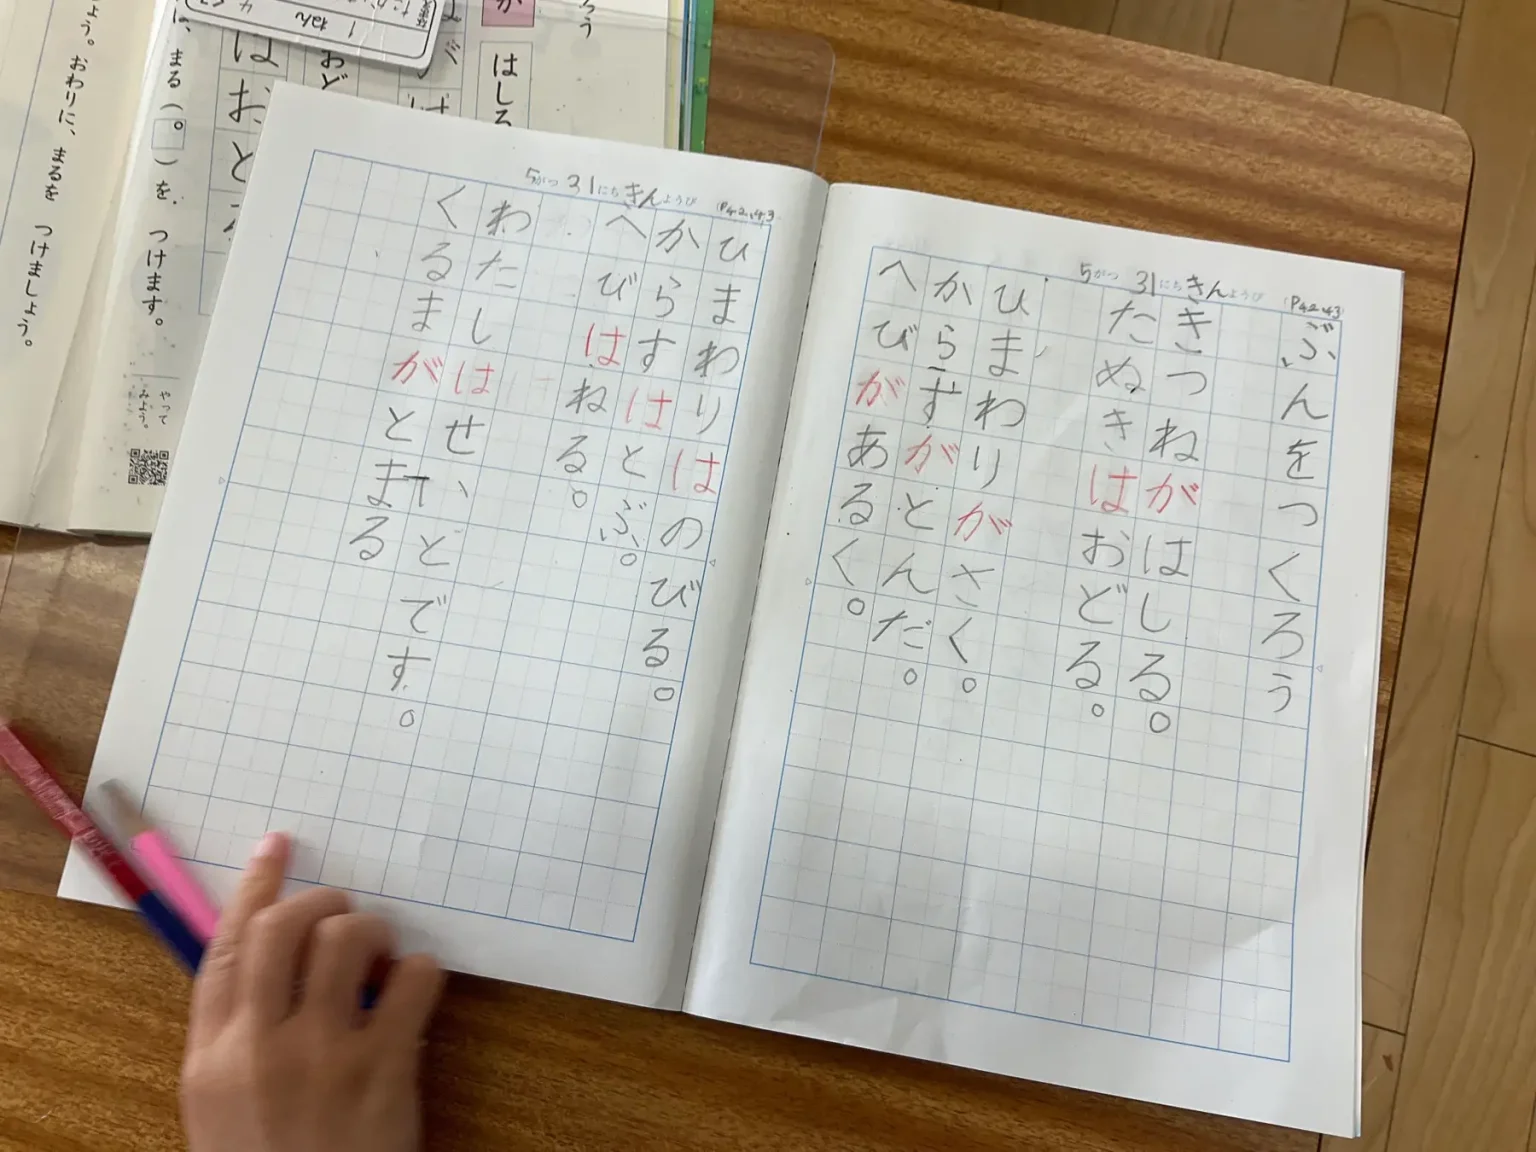 5がつ31にちきんようび (P42、43)
ぶんをつくろう
きつねがはしる。
たぬきはおどる。
ひまわりがさく。
からすがとんだ。
へびがあるく。
5がつ31にちきんようび (P42、43
ひまわりはのびる。
からすはとぶ。
へびはねる。
わたしはせいとです。
くるまがとまる
はしる
おど
はおど
1 ねん
に、まる(。)を、つけます。
やって
みよう。
よう。おわりに、まるを つけましょう。